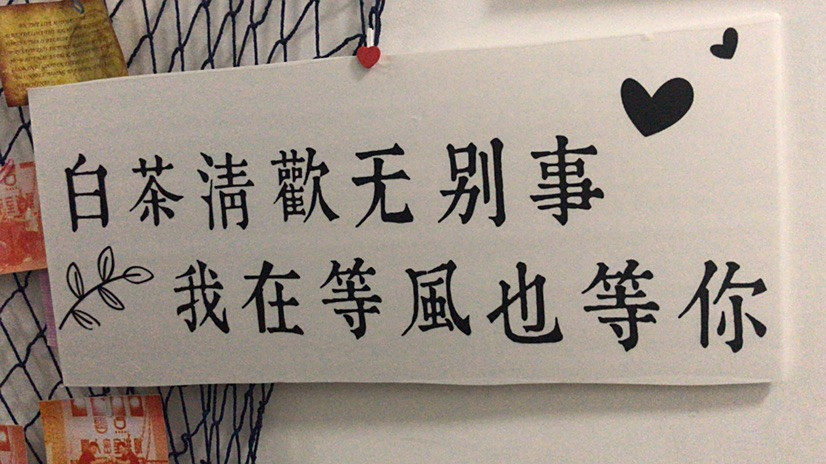 白茶清歡无别事
我在等風也等你